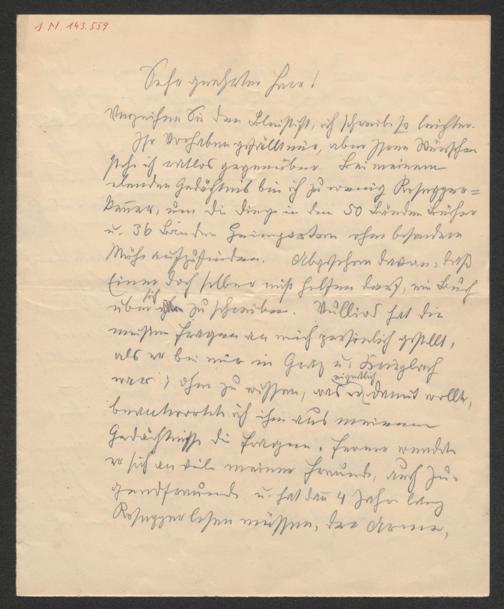 I. N. 143.559
Sehr geehrter Herr!
Verzeihen Sie den Bleistift, ich schreibe so leichter.
Ihr Vorhaben gefällt mir, aber Ihren Wünschen
stehe ich ratlos gegenüber. Bei meinem
elenden Gedächtnis bin ich zu wenig Rosegger=
kenner, um die Dinge in den 50 Bänden Bücher
u. 36 Bänden Heimgarten ohne besondere
Mühe aufzufinden. Abgesehen davon, daß
Einer doch selber nicht helfen darf, ein Buch
über sich zu schreiben. Vulliod hat die
meisten Fragen an mich persönlich gestellt,
als er bei mir in Graz u. Krieglach
war; ohne zu wissen, was er eigentlich damit wollte,
beantwortete ich ihm aus meinem
Gedächtnisse die Fragen. Ferner wendete
er sich an viele meiner Freunde, auch Ju-
gendfreunde u. hat dann 4 Jahre lang
Rosegger lesen müssen, der Arme,